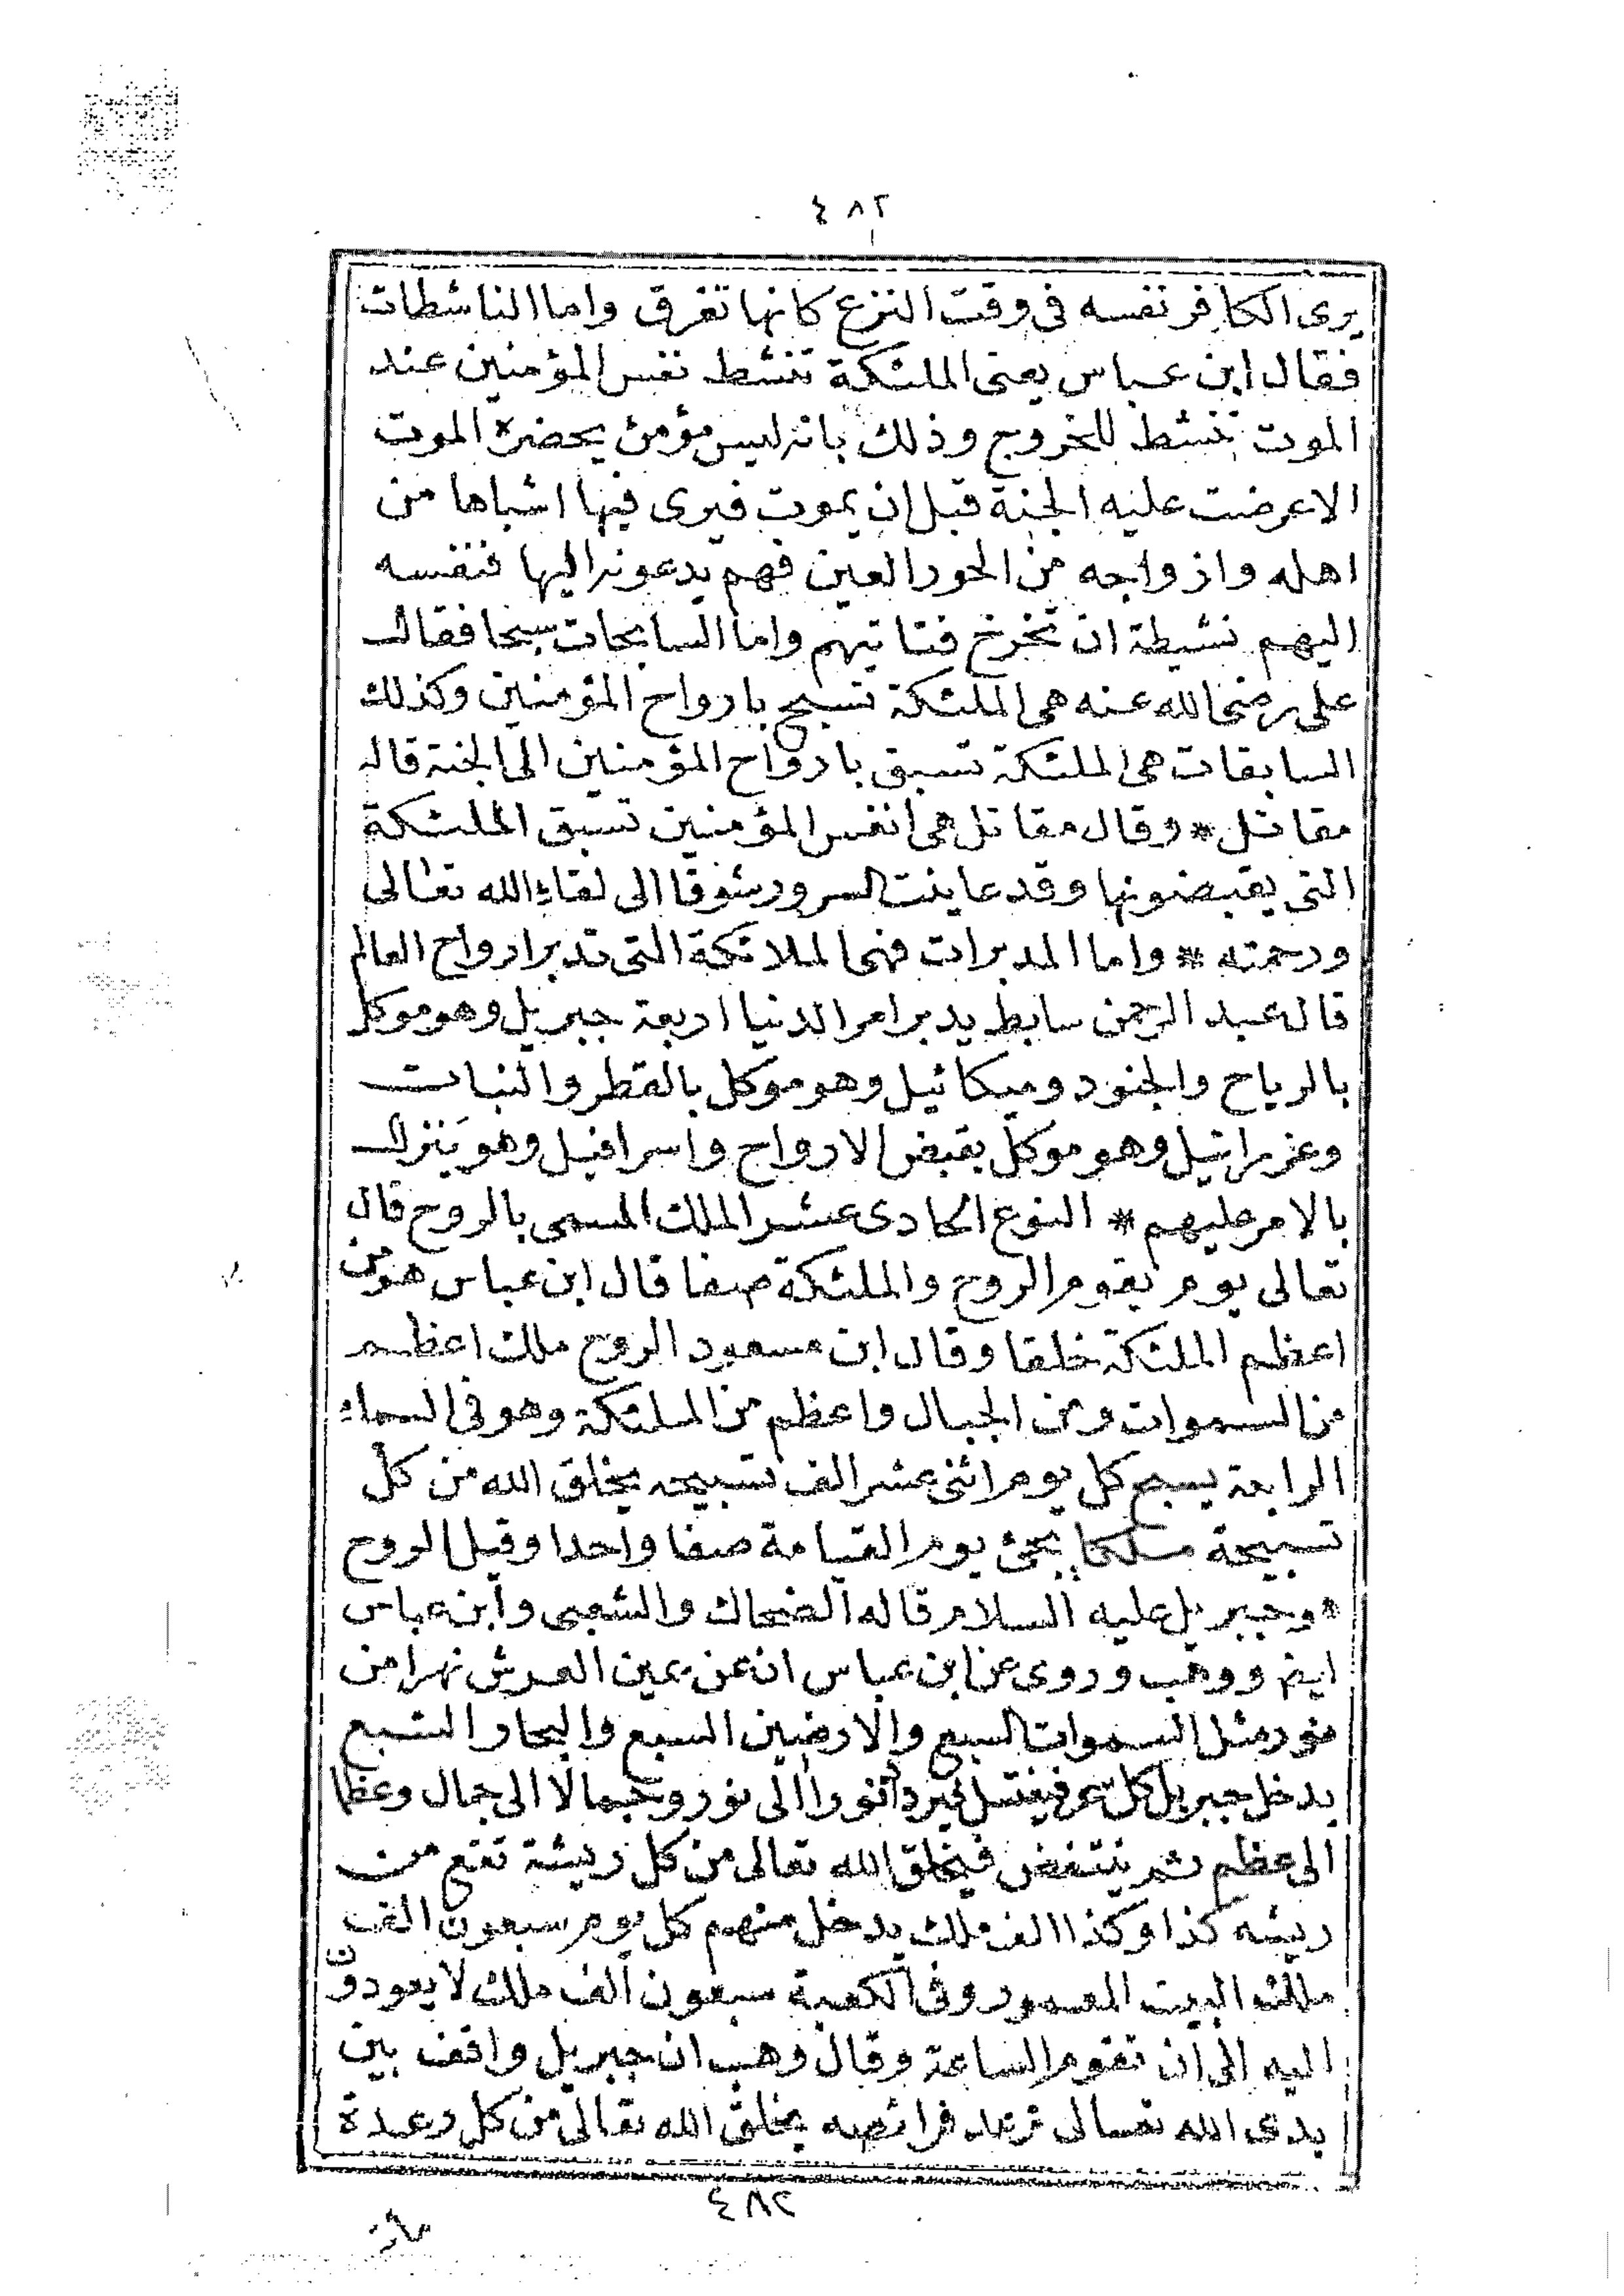 ٤٨٢
يرى الكافر نفسه فى وقت النزع كانها تغرق واما الناشطات
فقال ابن عباس يعنى الملئكة تنشط نفس المؤمنين عند
الموت تنشط للخروج وذلك بانه ليس مؤمن يحضره الموت
الا عرضت عليه الجنة قبل ان يموت فيرى فيها اشباها من
اهله وازواجه من الحور العين فهم يدعونه اليها فنفسه
اليهم نشيطة ان تخرج فتاتيهم واما السابحات سبحا فقال
على رضى الله عنه هى الملئكة تسبح بارواح المؤمنين وكذلك
السابقات هى الملئكة تسبق بارواح المؤمنين الى الجنة قاله
مقاتل * وقال مقاتل هى انفس المؤمنين تسبق الملئكة
التى يقبضونها وقد عاينت السرور شوقا الى لقاء الله تعالى
ورحمته * واما المدبرات فهى الملائكة التى تدبر ارواح العالم
قال عبد الرحمن سابط يدبر امر الدنيا اربعة جبريل وهو موكل
بالرياح والجنود وميكائيل وهو موكل بالقطر والنبات
وعزرائيل وهو موكل بقبض الارواح واسرافيل وهو يَنزل
بالامر عليهم * النوع الحادى عشر الملك المسمى بالروح قال
تعالى يوم يقوم الروح والملئكة صفا قال ابن عباس هو من
اعظم الملئكة خلقا وقال ابن مسعود الروح ملك اعظم
من السموات ومن الجبال واعظم من الملئكة وهو فى السماء
الرابعة يسبح كل يوم اثنى عشر الف تسبيحه يخلق الله من كل
تسبيحة ملكا يجئ يوم القيامة صفا واحدا وقيل الروح
هو جبريل عليه السلام قاله الضحاك والشعبى وابن عباس
ايض ووهب وروى عن ابن عباس ان عن يمين العرش نهرا من
نور مثل السموات السبع والارضين السبع والبحار السبع
يدخل جبريل كل فيغتسل فيزداد نورا الى نور وجمالا الى جمال وعظما
الى عظم ثم ينتفض فيخلق الله تعالى من كل ريشة تقع من
ريشه كذا وكذا الف ملك يدخل منهم كل يوم سبعون الف
ملك البيت المعمور وفى الكعبة سبعون الف ملك لا يعودون
اليه الى ان تقوم الساعة وقال وهب ان جبريل واقف بين
يدى الله تعالى ترعد فرائصه يخلق الله تعالى من كل رعدة
٤٨٢